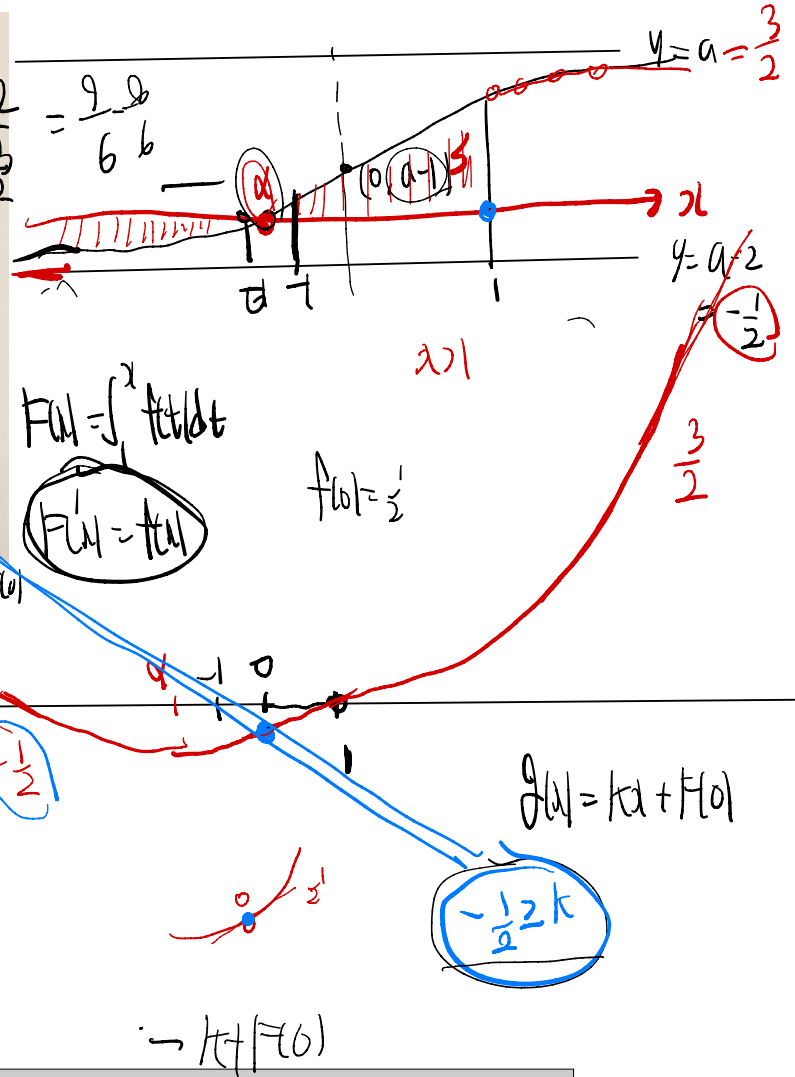 y = a = 3/2
= 9/6
α
(0, a-1)
x
-1
1
y = a-2
= -1/2
x>1
F(x) = ∫₁ˣ f(t)dt
F'(x) = f(x)
f(0) = 1/2
3/2
α -1 0
1
-1/2
g(x) = kx + F(0)
-1/2 ≥ k
1/2
k+F(0)